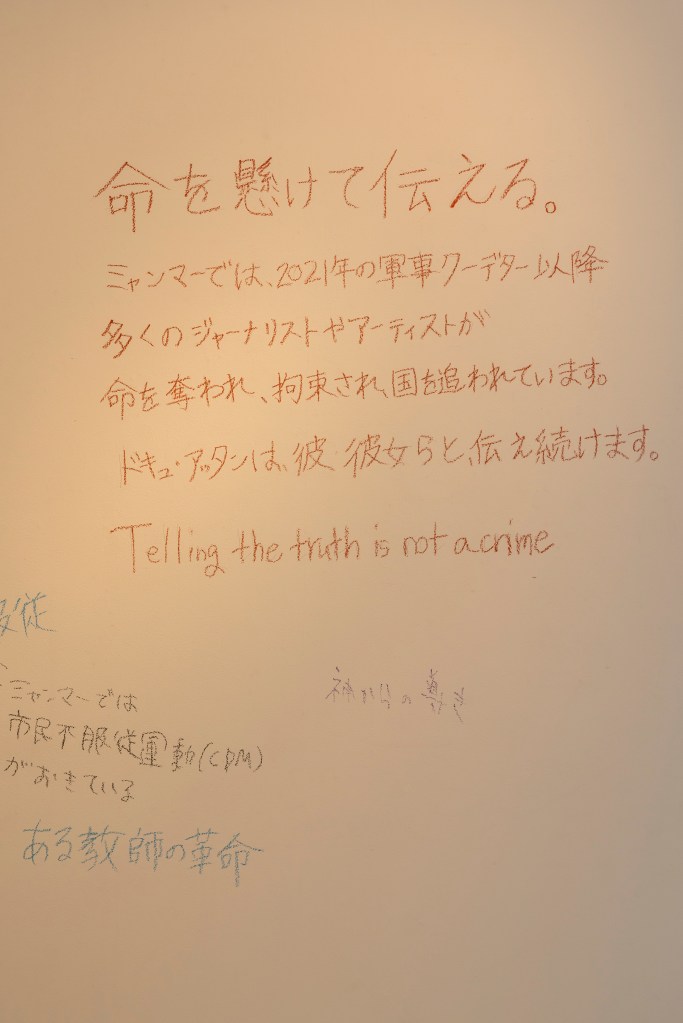 命を懸けて伝える。
ミャンマーでは、2021年の軍事クーデター以降
多くのジャーナリストやアーティストが
命を奪われ、拘束され、国を追われています。
ドキュ・アッタンは、彼 彼女らと、伝え続けます。
Telling the truth is not a crime
服従
ミャンマーでは
市民不服従運動(CDM)
がおきている
神からの導き
ある教師の革命